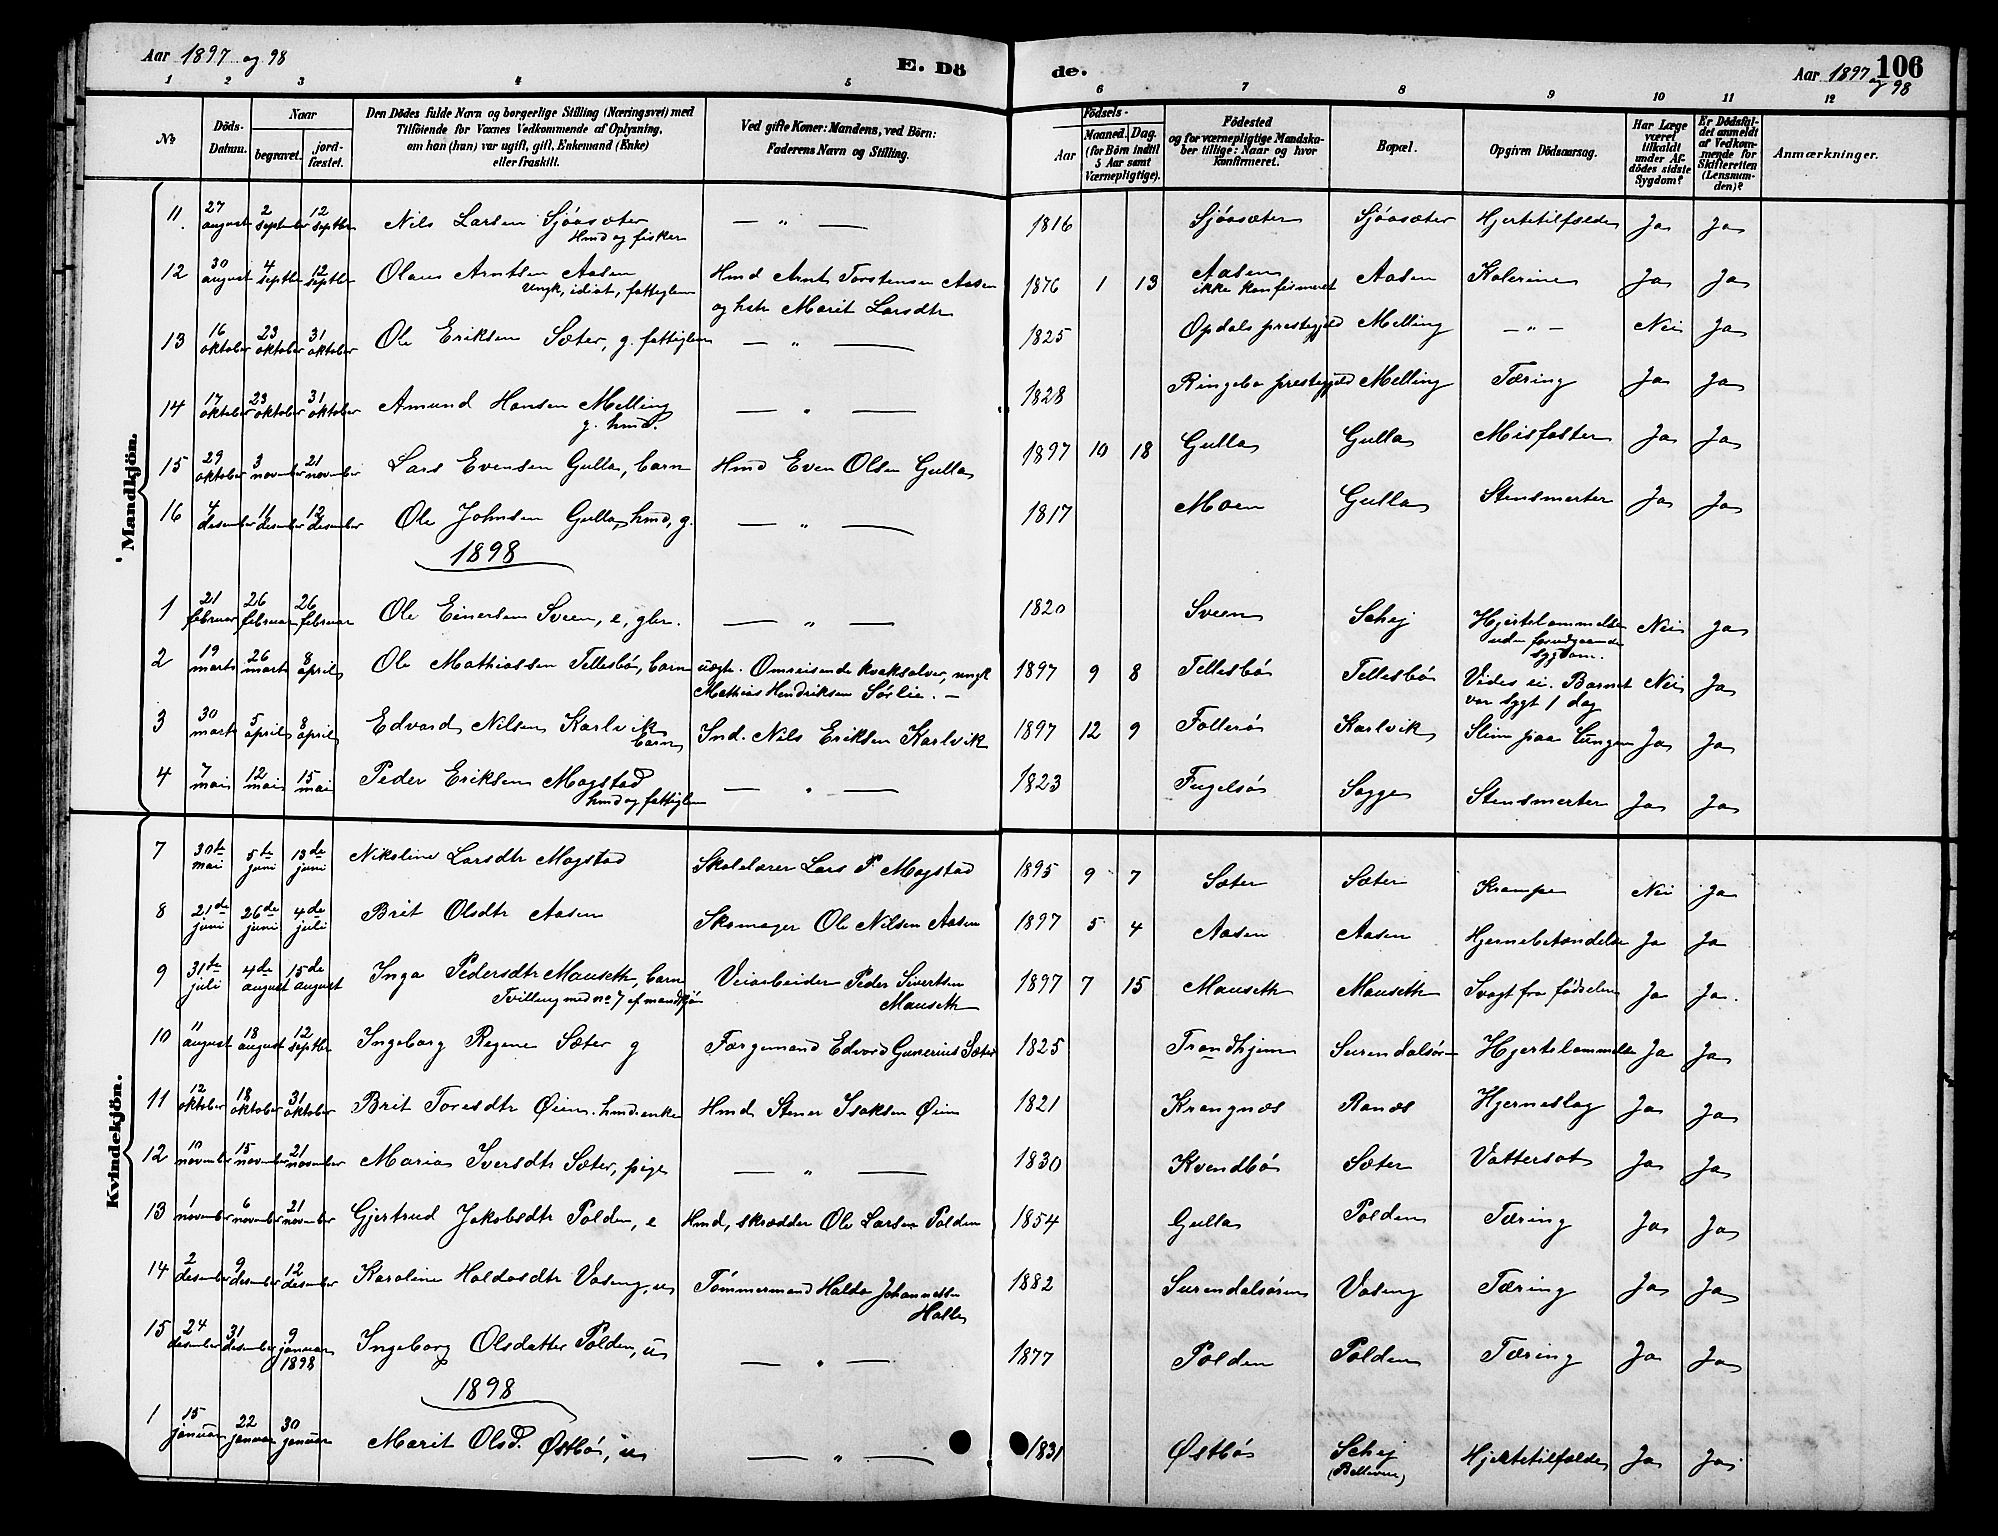 Aar 1897 og 98
E. Dö
de.
Aar 1897 og 98
106
1 2 3 4 5 6 7 8 9 10 11 12
No.
Döds-Datum.
Naar
begravet.
jord-fæstet.
Den Dödes fulde Navn og borgerlige Stilling (Næringsvei) med
Tilföiende for Voxnes Vedkommende af Oplysning,
om han (hun) var ugift, gift, Enkemand (Enke)
eller fraskilt.
Ved gifte Koner: Mandens, ved Börn:
Faderens Navn og Stilling.
Födsels-
Aar
Maaned. Dag.
(for Börn indtil
5 Aar samt
Værnepligtige).
Födested
og for værnepligtige Mandska-
ber tillige: Naar og hvor
Konfirmeret.
Bopæl.
Opgiven Dödsaarsag.
Har Læge
været
tilkaldt
under Af-
dödes sidste
Sygdom?
Er Dödsfal-
det anmeldt
af Vedkom-
mende for
Skifteretten
(Lensman-
den)?
Anmærkninger.
Mandkjön.
11. 27 august 2 september 12 septbr Nils Larsen Sjöasæter Hmd og fisker — " — 1816 Sjöasæter Sjöasæter Hjertetilfælde Ja Ja
12 30 august 4 septbr 12 septbr Olaus Arntsen Aasen Ungk, idiot, fattiglem Hmd Arnt Torstensen Aasen og hstr Marit Larsdtr 1876 1 13 Aasen ikke konfirmeret Aasen Kolerine Ja Ja
13 16 oktober 23 oktober 31 oktober Ole Eriksen Sæter, g. fattiglem — " — 1825 Opdals prestegjeld Melling — " — Nei Ja
14 17 oktober 23 oktober 31 oktober Amund Hansen Melling g. hmd. — " — 1828 Ringebo prestegjeld Melling Tæring Ja Ja
15 29 oktober 3 november 21 november Lars Evensen Gulla, barn Hmd Even Olsen Gulla 1897 10 18 Gulla Gulla Misfoster Ja Ja
16 4 desember 11 desember 12 desember Ole Johnsen Gulla, hmd, g. — " — 1817 Moen Gulla Stensmerter Ja Ja
1898
1 21 februar 26 februar 26 februar Ole Einersen Sveen, e, glem. — " — 1820 Sveen Schej Hjertelammelse uden forudgaaende sygdom. Nei Ja
2 19 marts 26 marts 8 april Ole Mathiassen Tellesbö, barn uægte. Omreisende kvaksalver, ungk Mathias Hendriksen Sörlie. — 1897 9 8 Tellesbö Tellesbö Vides ei. Barnet var sygt 1 dag Nei Ja
3 30 marts 5 april 8 april Edvard Nilsen Karlvik barn Ind. Nils Eriksen Karlvik 1897 12 9 Follerö Karlvik Slim paa Lungen Ja Ja
4 7 mai 12 mai 15 mai Peder Eriksen Mogstad hmd og fattiglem — " — 1823 Fugelsö Sogge Stensmerter Ja Ja
Kvindekjön.
7 30te mai 5te juni 13de juni Nikoline Larsdtr Mogstad Skolelærer Lars P. Mogstad 1895 9 7 Sæter Sæter Krampe Nei Ja
8 21de juni 26de juni 4de juli Brit Olsdtr Aasen Skomager Ole Nilsen Aasen 1897 5 4 Aasen Aasen Hjernebetændelse Ja Ja
9 31te juli 4de august 15de august Inga Pedersdtr Mauseth, barn Tvilling med no 7 af mandkjön Veiarbeider Peder Sivertsen Mauseth 1897 7 15 Mauseth Mauseth Svagt fra födselen Ja Ja.
10 11 august 18 august 12 septbr Ingeborg Regine Sæter g Færgemand Edvard Gunerius Sæter 1825 Trondhjem Surendalsör Hjertelammelse Ja Ja
11 12 oktober 18 oktober 31 oktober Brit Toresdtr Øien. hmdsenke Hmd Stener Isaksen Øien 1821 Krangnæs Ranæs Hjerneslag Ja Ja
12 10 november 15 november 21 november Maria Iversdtr Sæter, pige — " — 1830 Kvendbö Sæter Vattersot Ja Ja
13 1 november 6 november 21 november Gjertrud Jakobsdtr Polden, e Hmd, skrædder Ole Larsen Polden 1854 Gulla Polden Tæring Ja Ja
14 2 desember 9 desember 12 desember Karoline Haldosdtr Vaseng, u Tömmermand Haldo Johannessen Halle 1882 Surendalsören Vaseng Tæring Ja Ja
15 24 desember 31 desember 9 januar 1898 Ingeborg Olsdatter Polden, u — " — 1877 Polden Polden Tæring Ja Ja
1898
1 15 januar 22 januar 30 januar Marit Olsd. Østbö, u — " — 1831 Østbö Schej (Bellevue) Hjertetilfælde Ja Ja